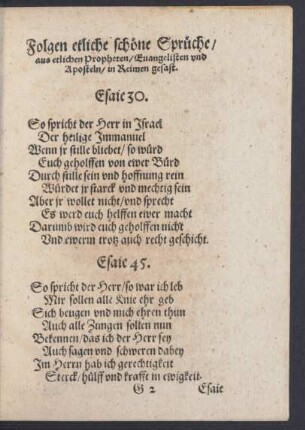 Folgen etliche schöne Sprüche/
aus etlichen Propheten/ Euangelisten vnd
Aposteln/ in Reimen gefast.
Esaie 30.
So spricht der Herr in Israel
Der heilige Immanuel
Wenn jr stille bliebet/ so würd
Euch geholffen von ewer Bürd
Durch stille sein vnd hoffnung rein
Würdet jr starck vnd mechtig sein
Aber jr wollet nicht/ vnd sprecht
Es werd euch helffen ewer macht
Darumb wird euch geholffen nicht
Vnd ewerm trotz auch recht geschicht.
Esaie 45.
So spricht der Herr/ so war ich leb
Mir sollen alle Knie ehr geb
Sich beugen vnd mich ehren thun
Auch alle Zungen sollen nun
Bekennen/ das ich der Herr sey
Auch sagen vnd schweren dabey
Im Herrn hab ich gerechtigkeit
Sterck/ hülff vnd krafft in ewigkeit.
G 2 Esaie